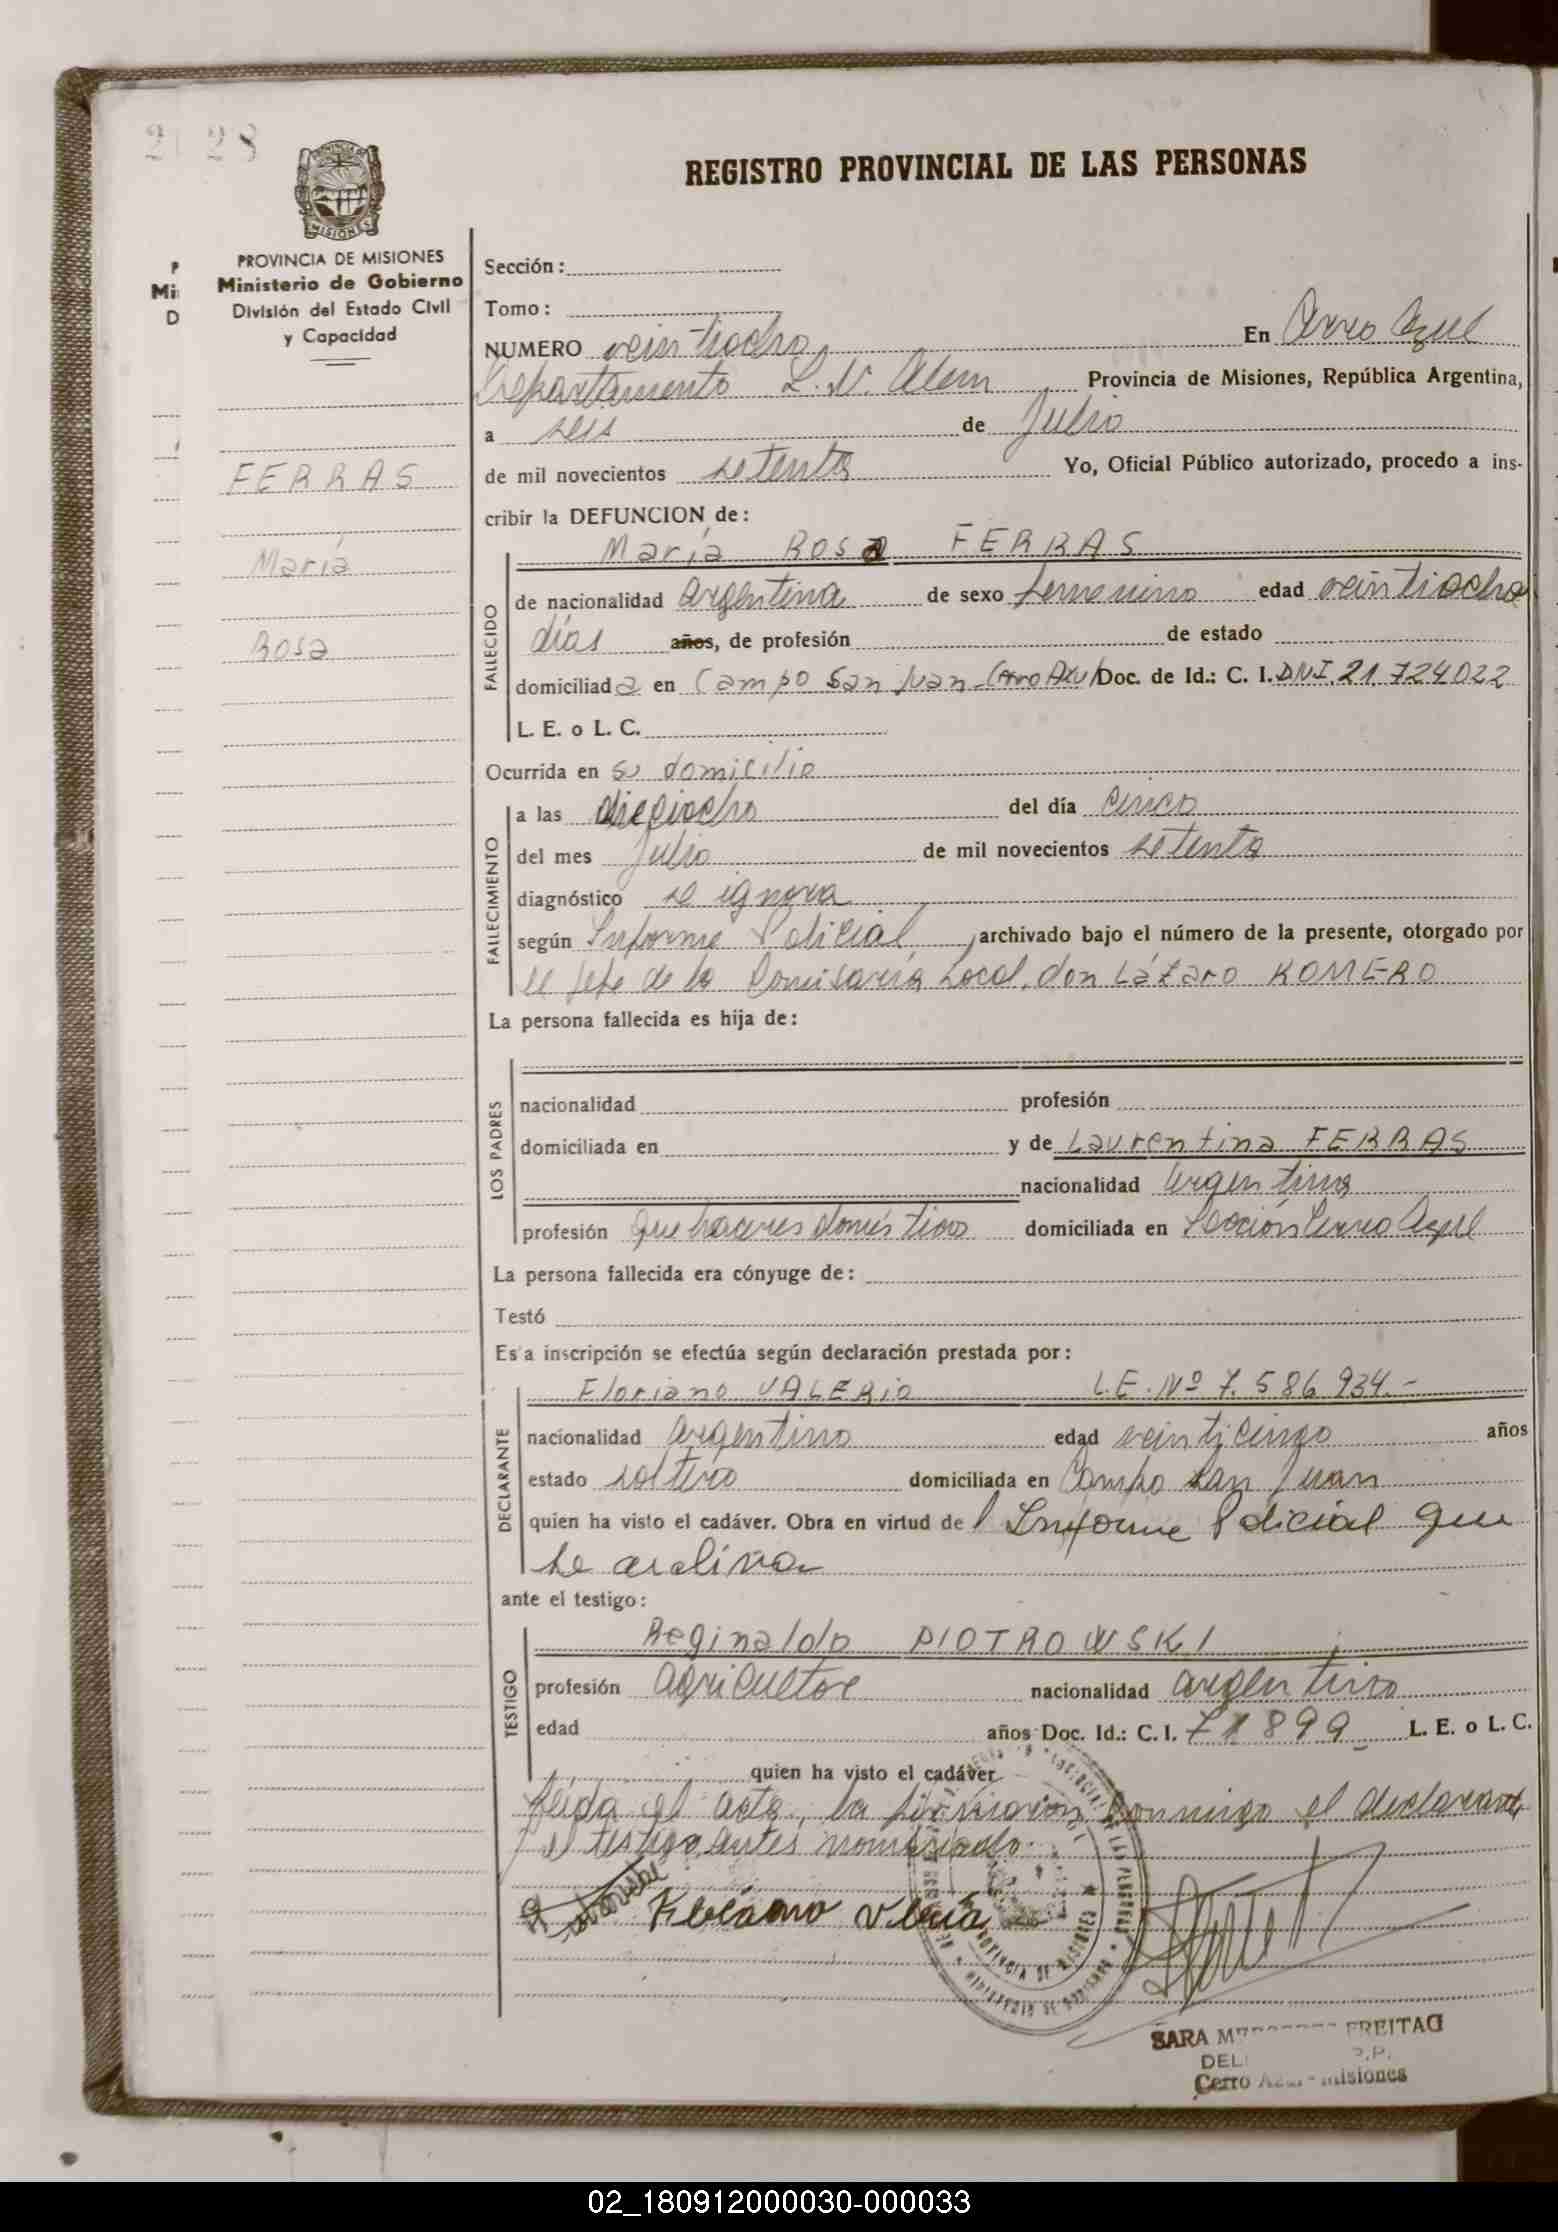 28
REGISTRO PROVINCIAL DE LAS PERSONAS
PROVINCIA DE MISIONES
Ministerio de Gobierno
División del Estado Civil
y Capacidad
FERRAS
María
Rosa
Sección:
Tomo:
NUMERO veintiocho En Cerro Azul
Departamento L. N. Alem Provincia de Misiones, República Argentina,
a seis de Julio
de mil novecientos setenta Yo, Oficial Público autorizado, procedo a ins-
cribir la DEFUNCION de:
María Rosa FERRAS
FALLECIDO
de nacionalidad argentina de sexo femenino edad veintiocho
días años, de profesión de estado
domiciliada en Campo San Juan - Cerro Azul Doc. de Id.: C. I. DNI. 21.724022
L. E. o L. C.
Ocurrida en su domicilio
FALLECIMIENTO
a las dieciocho del día cinco
del mes Julio de mil novecientos setenta
diagnóstico se ignora
según Informe Policial, archivado bajo el número de la presente, otorgado por
el Jefe de la Comisaría Local, don Lázaro ROMERO
La persona fallecida es hija de:
LOS PADRES
nacionalidad profesión
domiciliada en y de Laurentina FERRAS
nacionalidad argentina
profesión quehaceres domésticos domiciliada en Sección Cerro Azul
La persona fallecida era cónyuge de:
Testó
Esa inscripción se efectúa según declaración prestada por:
DECLARANTE
Floriano VALERIO L.E. Nº 7.586.934.-
nacionalidad argentino edad veinticinco años
estado soltero domiciliada en Campo San Juan
quien ha visto el cadáver. Obra en virtud del Informe Policial que
se archiva
ante el testigo:
TESTIGO
Reginaldo PIOTROWSKI
profesión agricultor nacionalidad argentino
edad años Doc. Id.: C. I. 71899 L. E. o L. C.
quien ha visto el cadáver
Leída el acta, la firmaron conmigo el declarante
y el testigo antes nombrado.
PROVINCIA DE MISIONES
SARA FREITAG
Cerro Azul - Misiones
02_180912000030-000033